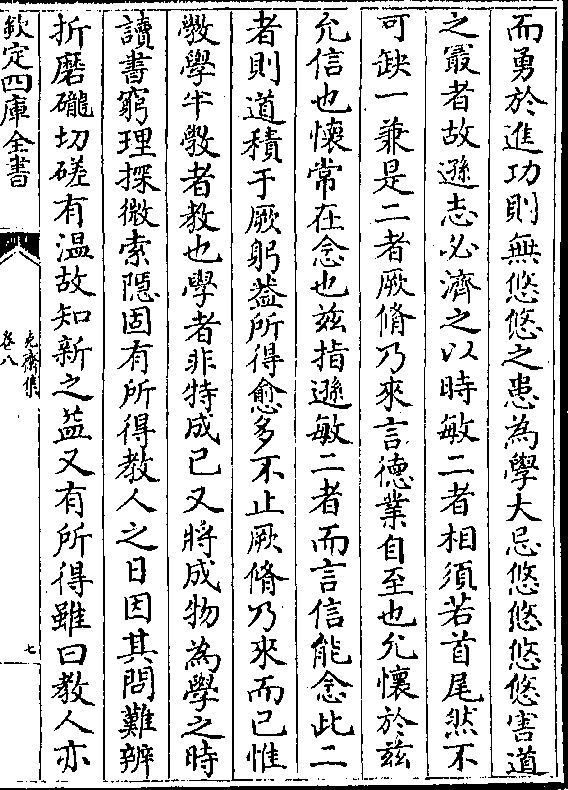 而勇於進功則無悠悠之患為學大忌悠悠悠悠害道
之叢者故遜志必濟之以時敏二者相須若首尾然不
可缺一兼是二者厥脩乃來言德業自至也允懷於兹
允信也懷常在念也兹指遜敏二者而言信能念此二
者則道積于厥躬葢所得愈多不止厥脩乃來而已惟
斆學半斆者教也學者非特成已又將成物為學之時
讀書窮理探微索隱固有所得教人之日因其問難辨
折磨礲切磋有温故知新之益又有所得雖曰教人亦
欽定四庫全書
克齋集
卷八
七